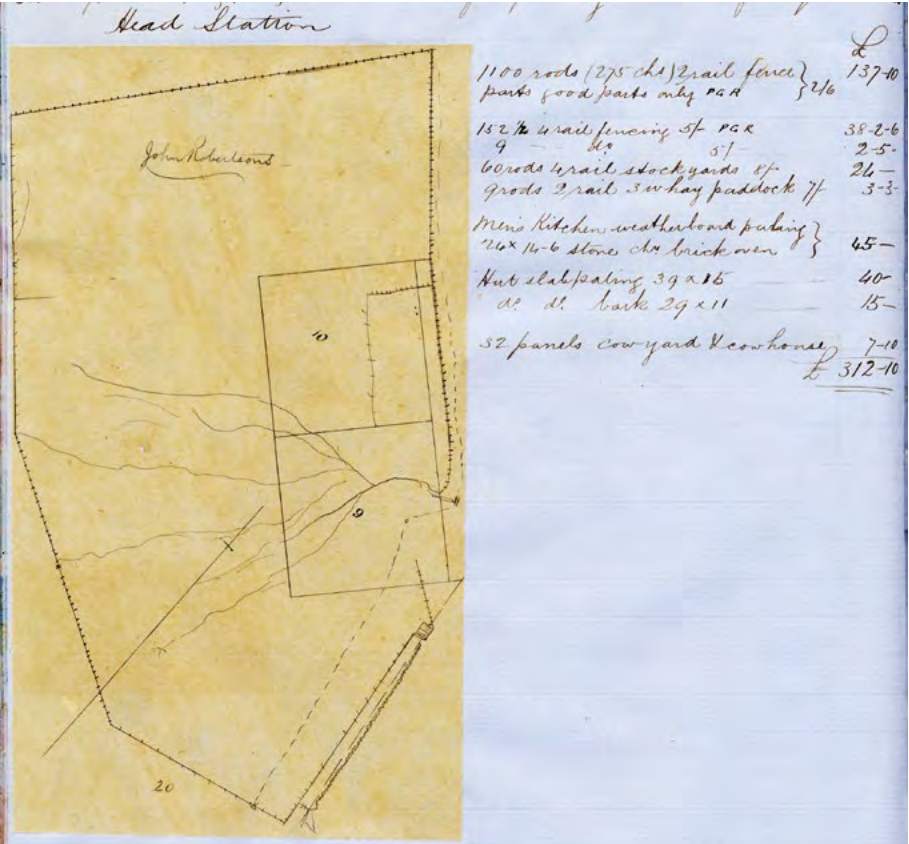 Head Station
£
1100 rods (275 chs) 2 rail fence } 137-10
parts good parts only PGR } 2/6
152 1/2 4 rail fencing 5/- PGR 38-2-6
9 do 5/- 2-5-
60 rods 4 rail stockyards 8/- 24-
9 rods 2 rail 3 w hay paddock 7/- 3-3-
Mens Kitchen weatherboard paling }
24 x 14-6 stone chy brick oven } 45-
Hut slab paling 39 x 15 40-
do. do. bark 29 x 11 15-
32 panels cow yard & cowhouse 7-10
£ 312-10
John Robertsons
10
9
20